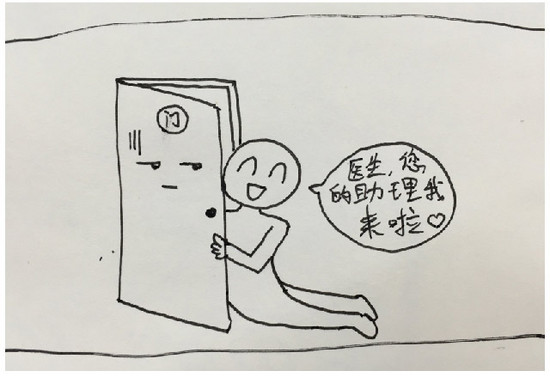 门
医生,您
的助理我
来啦♡